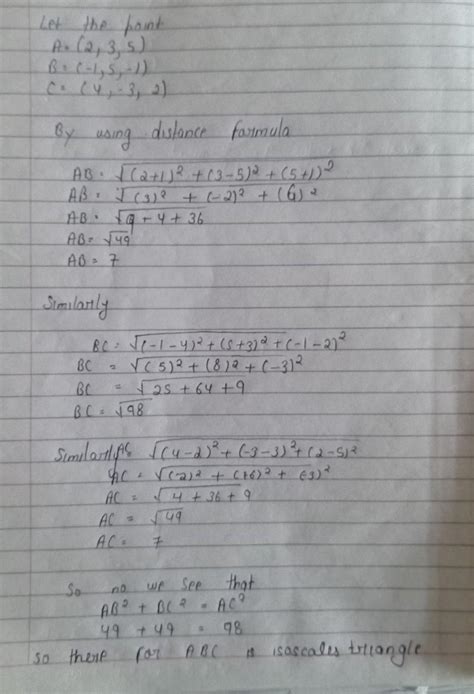 Let the point
A = (2, 3, 5)
B = (-1, 5, -1)
C = (4, -3, 2)
By using distance formula
AB = √(2+1)² + (3-5)² + (5+1)²
AB = √(3)² + (-2)² + (6)²
AB = √9 + 4 + 36
AB = √49
AB = 7
Similarly
BC = √(-1-4)² + (5+3)² + (-1-2)²
BC = √(5)² + (8)² + (-3)²
BC = √25 + 64 + 9
BC = √98
Similarly AC √(4-2)² + (-3-3)² + (2-5)²
AC = √(-2)² + (+6)² + (-3)²
AC = √4 + 36 + 9
AC = √49
AC = 7
So no we see that
AB² + BC² = AC²
49 + 49 = 98
so there for ABC is isoscales triangle